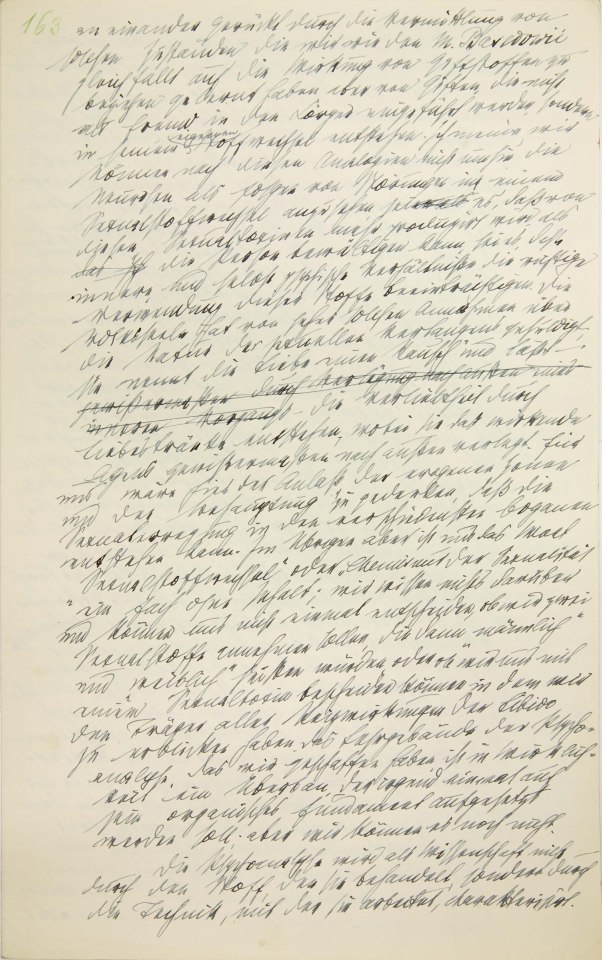 163 an einander gerückt durch die Vermittlung von
solchen Zuständen die wir wie den M. Basedowii
gleichfalls auf die Wirkung von Giftstoffen zu
beziehen gelernt haben aber von Giften die nicht
als fremd in den Körper eingeführt werden sondern
in seinem eigenen Stoffwechsel entstehen. Ich meine wir
können nach diesen Analogien nicht umhin die
Neurosen als Folgen von Störungen in einem
Sexualstoffwechsel anzusehen sei es, daß von
diesen Sexualtoxinen mehr produzirt wird als
die Person bewältigen kann, sei es, daß
innere und selbst psychische Verhältniße die richtige
Verwendung dieser Stoffe beeinträchtigen. Die
Volksseele hat von jeher solchen Annahmen über
die Natur des sexuellen Verlangens gehuldigt
Sie nennt die Liebe einen "Rausch" und läßt
gewißermaßen durch Verlegung nach außen
die Verliebtheit durch
Liebestränke entstehen, wobei sie das wirkende
Agens gewissermaßen nach außen verlegt. Für
uns wäre hier der Anlaß der erogenen Zonen
und der Behauptung zu gedenken, daß die
Sexualerregung in den verschiedensten Organen
entstehen kann. Im Übrigen aber ist uns das Wort
"Sexualstoffwechsel" oder "Chemismus der Sexualität"
ein Fach ohne Inhalt; wir wissen nichts darüber
und können uns nicht einmal entscheiden, ob wir zwei
Sexualstoffe annehmen sollen, die dann "männlich"
und "weiblich" heißen würden oder ob wir uns mit
einem Sexualtoxin bescheiden können, in dem wir
den Träger aller Reizwirkungen der Libido
zu erblicken haben. Das Lehrgebäude der Psycho-
analyse, das wir geschaffen haben ist in Wirklich-
keit ein Überbau, der irgend einmal auf
sein organisches Fundament aufgesetzt
werden soll; aber wir können es noch nicht.
Die Psychoanalyse wird als Wissenschaft nicht
durch den Stoff, den sie behandelt, sondern durch
die Technik, mit der sie arbeitet, charakterisirt.